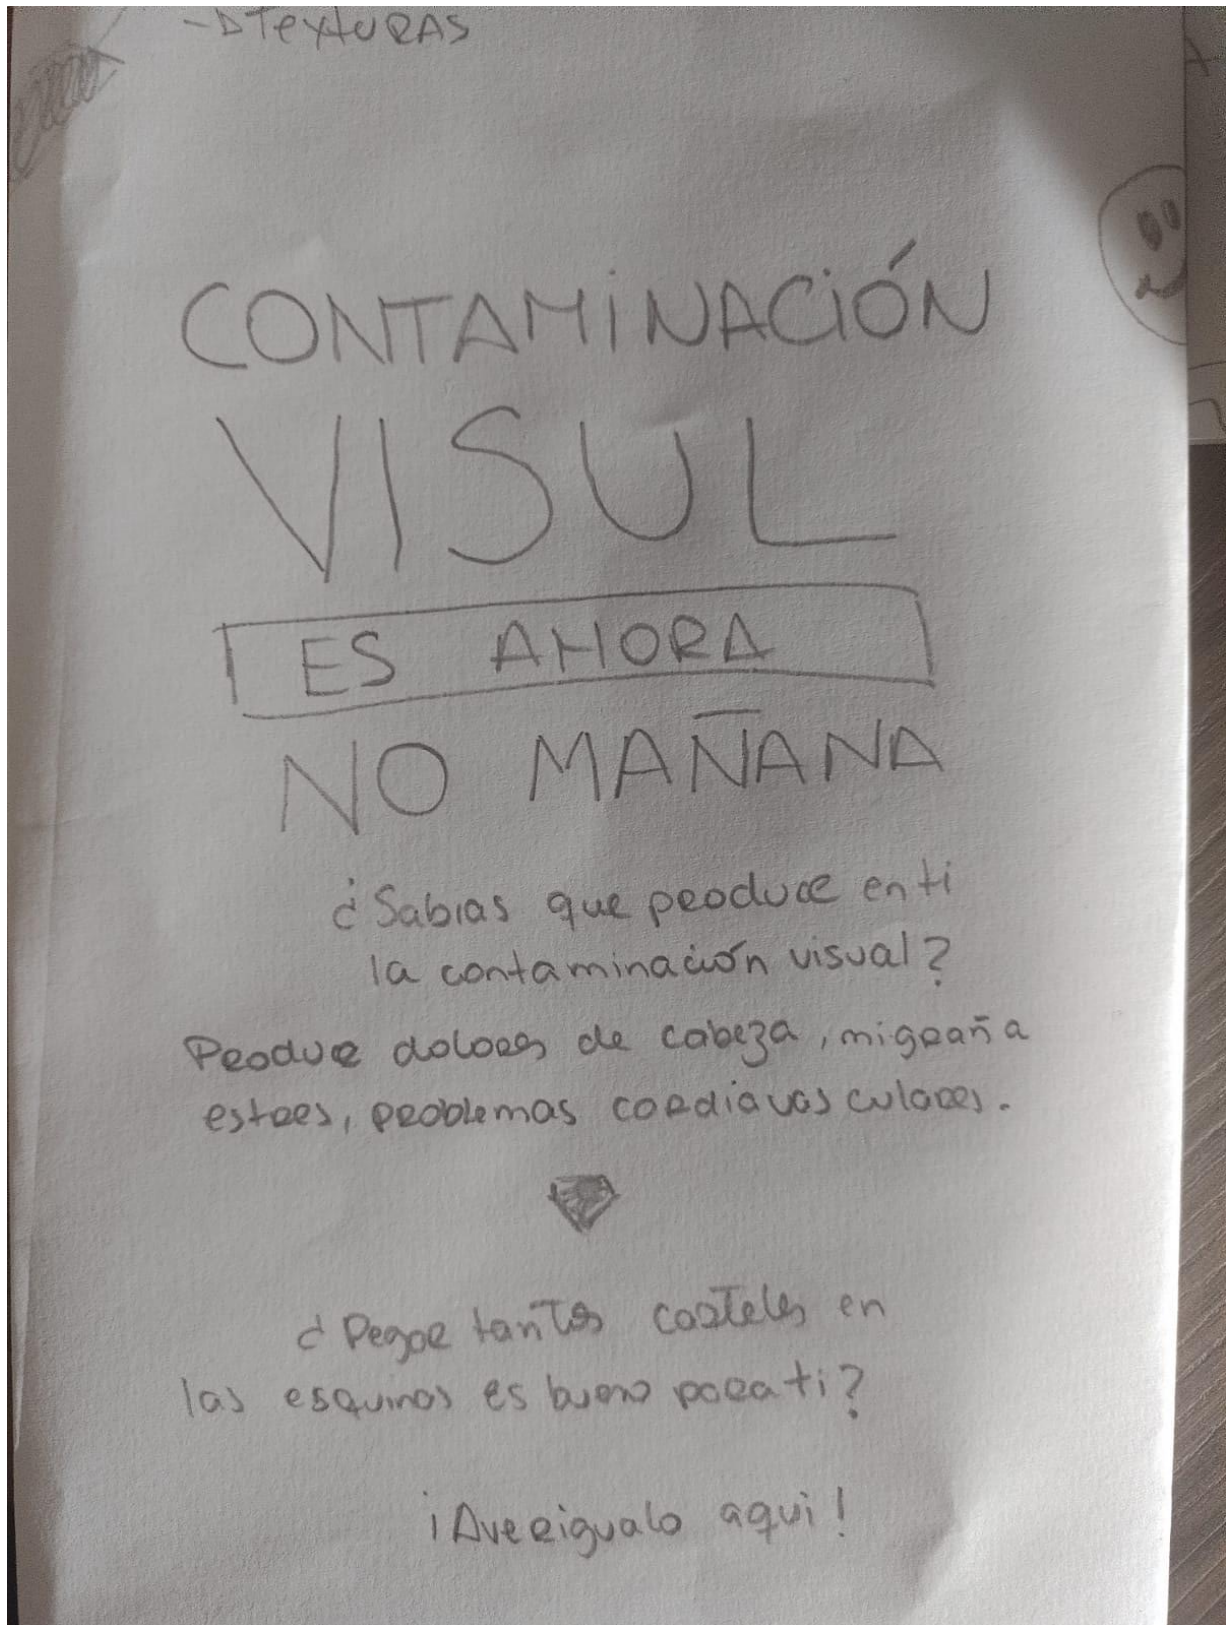 → Texturas
CONTAMINACIÓN
VISUL
ES AHORA
NO MAÑANA
¿Sabias que produce en ti
la contaminación visual?
Produce dolores de cabeza, migraña
estres, problemas cordiavasculares.
¿Pegar tantos carteles en
las esquinas es bueno para ti?
¡Averigualo aqui!